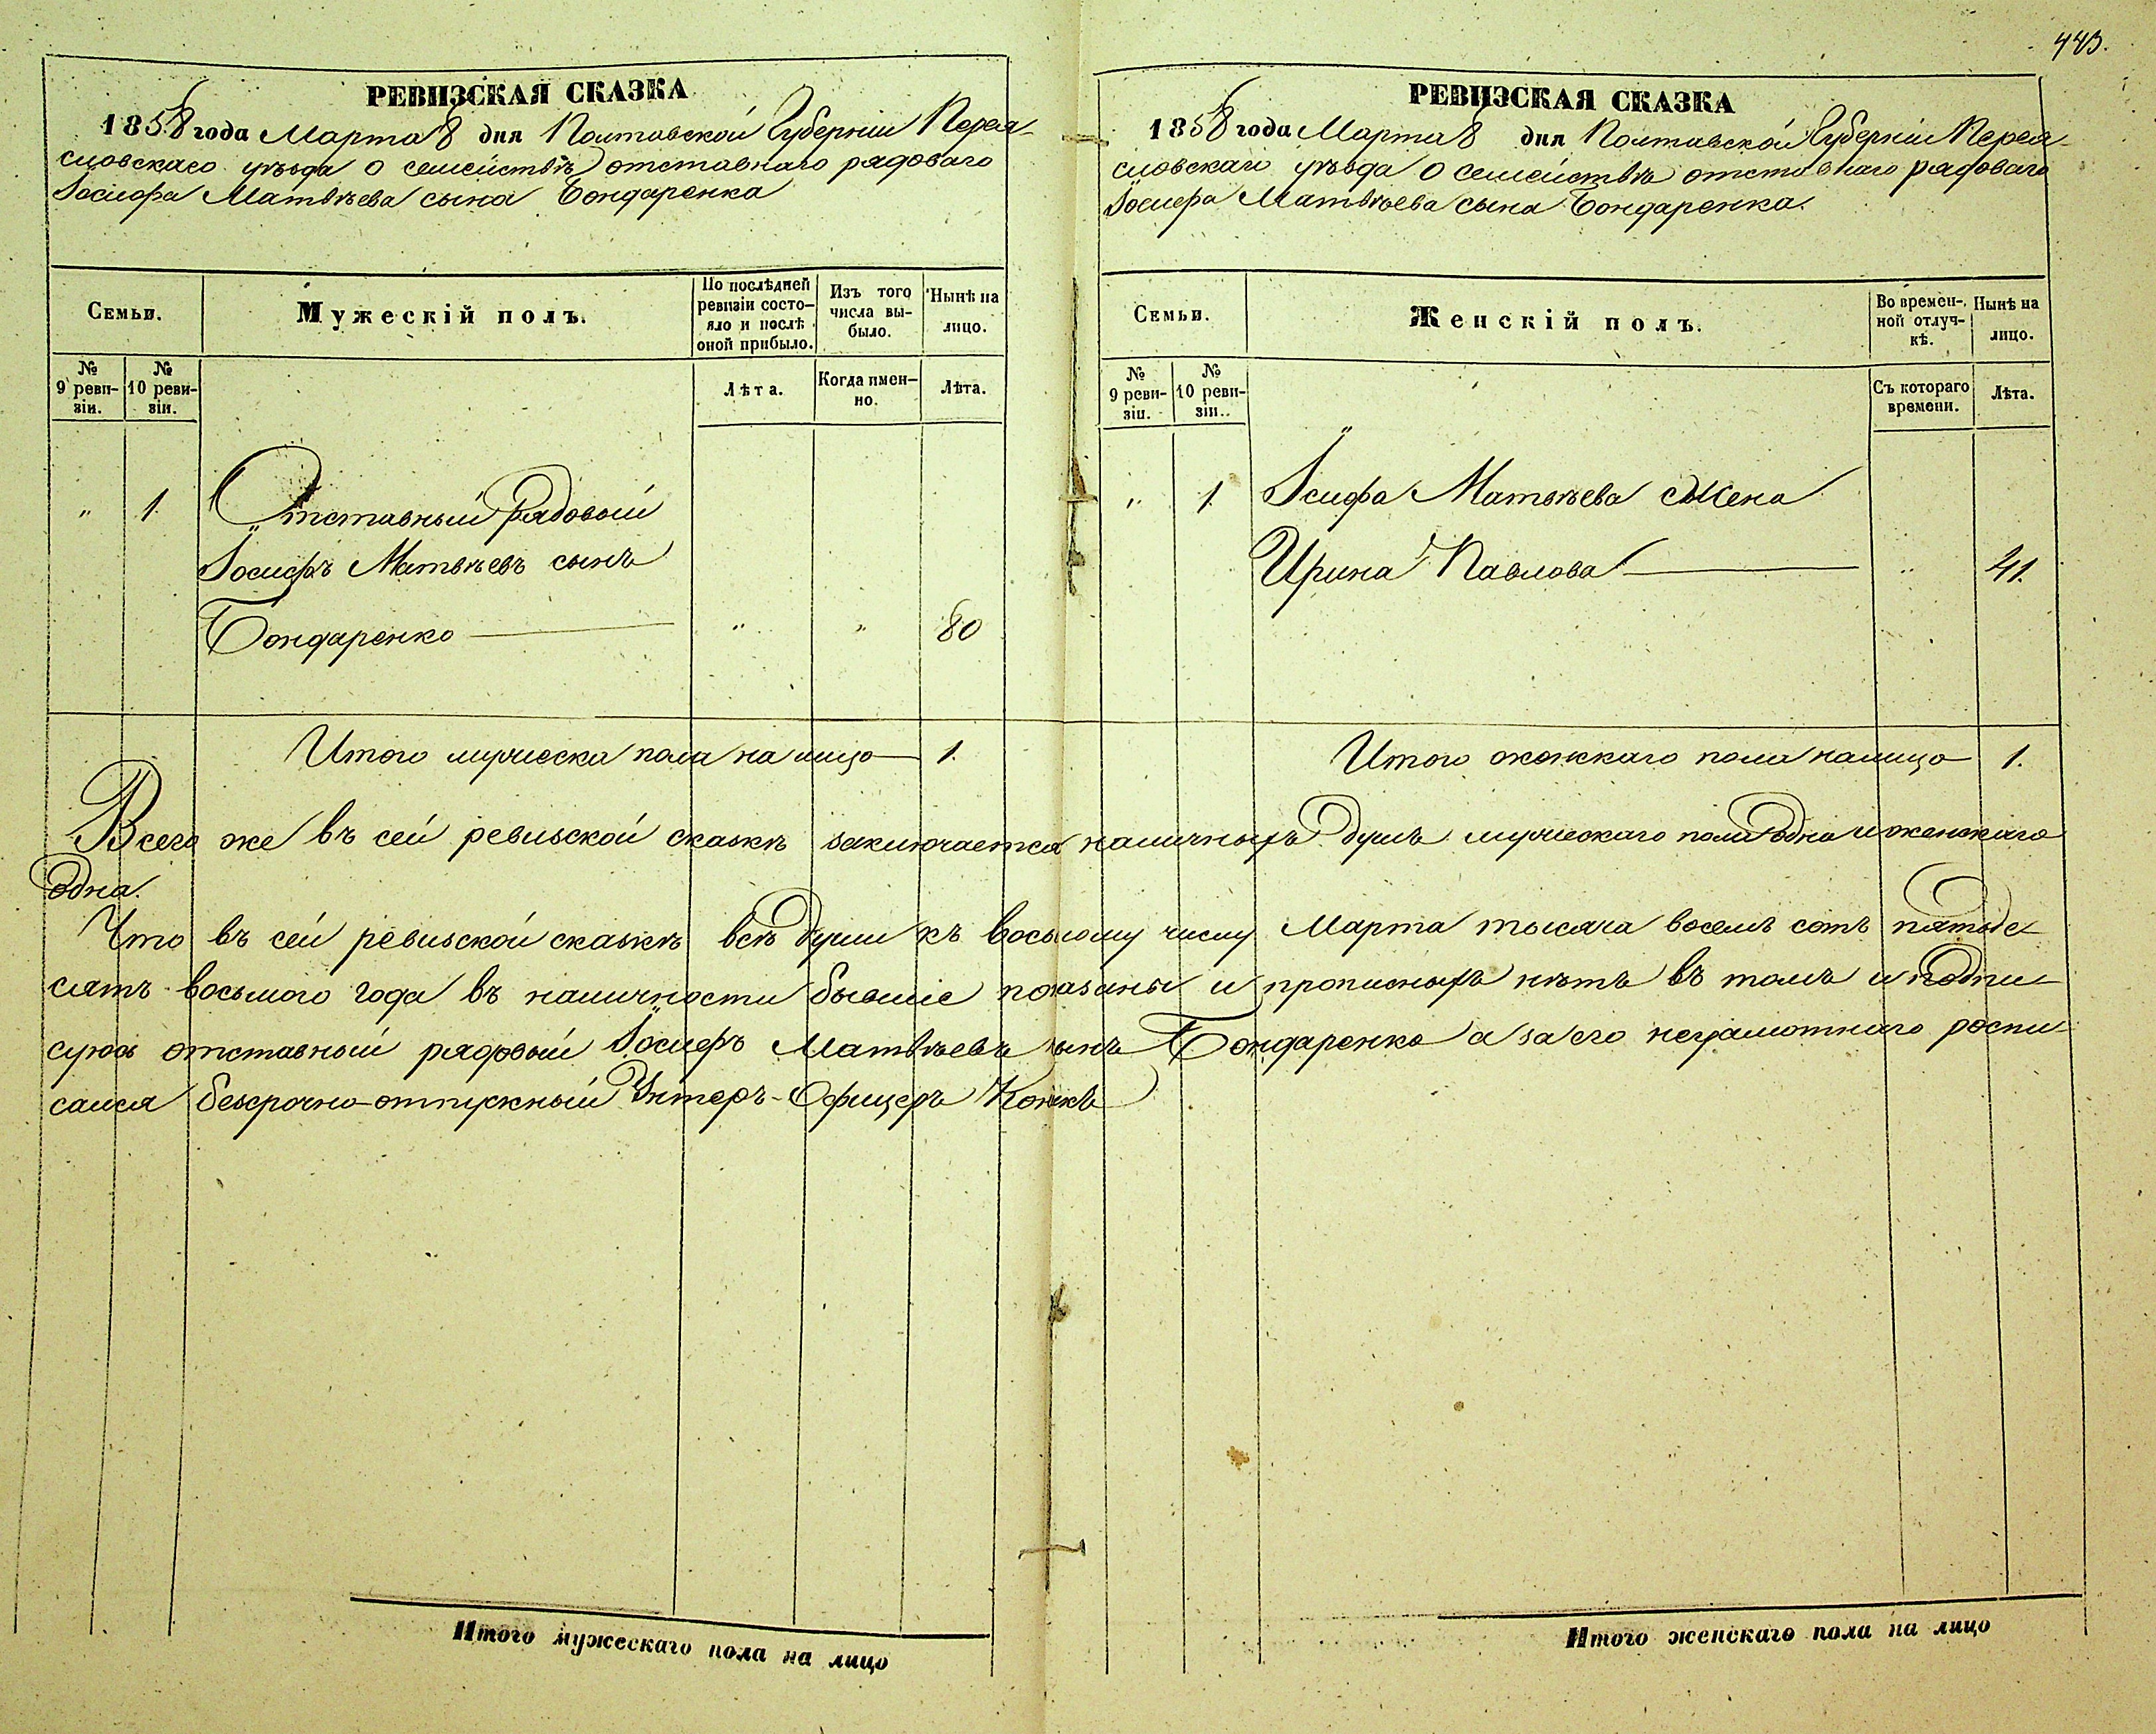 443.
РЕВИЗСКАЯ СКАЗКА
1858 года Марта 8 дня Полтавской Губерніи Перея-
словскаго уѣзда о семействѣ отставнаго рядоваго
Іосифа Матвѣева сына Бондаренка
Семьи.
Мужескій полъ.
По послѣдней ревизіи состо-
яло и послѣ оной прибыло.
Изъ того числа вы-
было.
Нынѣ на лицо.
№ 9 реви-
зіи.
№ 10 реви-
зіи.
Лѣта.
Когда имен-
но.
Лѣта.
„ 1. Отставный рядовой
Іосифъ Матвѣевъ сынъ
Бондаренко — „ „ 80
Итого мужеска пола на лицо — 1.
РЕВИЗСКАЯ СКАЗКА
1858 года Марта 8 дня Полтавской Губерніи Перея-
словскаго уѣзда о семействѣ отставнаго рядоваго
Іосифа Матвѣева сына Бондаренка.
Семьи.
Женскій полъ.
Во времен-
ной отлуч-
кѣ.
Нынѣ на лицо.
№ 9 реви-
зіи.
№ 10 реви-
зіи.
Съ котораго времени.
Лѣта.
„ 1. Іосифа Матвѣева Жена
Ирина Павлова — „ 41.
Итого женскаго пола налицо 1.
Всего же въ сей ревизской сказкѣ заключается наличныхъ душъ мужескаго пола одна и женскаго
одна.
Что въ сей ревизской сказкѣ всѣ души къ восьмому числу Марта тысяча восемь сотъ пятьде-
сятъ восьмого года въ наличности бывшіе показаны и прописныхъ нѣтъ въ томъ и подпи-
суюсь отставный рядовый Іосифъ Матвѣевъ сынъ Бондаренко а за его неграмотнаго роспи-
сался безсрочно-отпускный Унтеръ-Офицеръ
Итого мужескаго пола на лицо
Итого женскаго пола на лицо